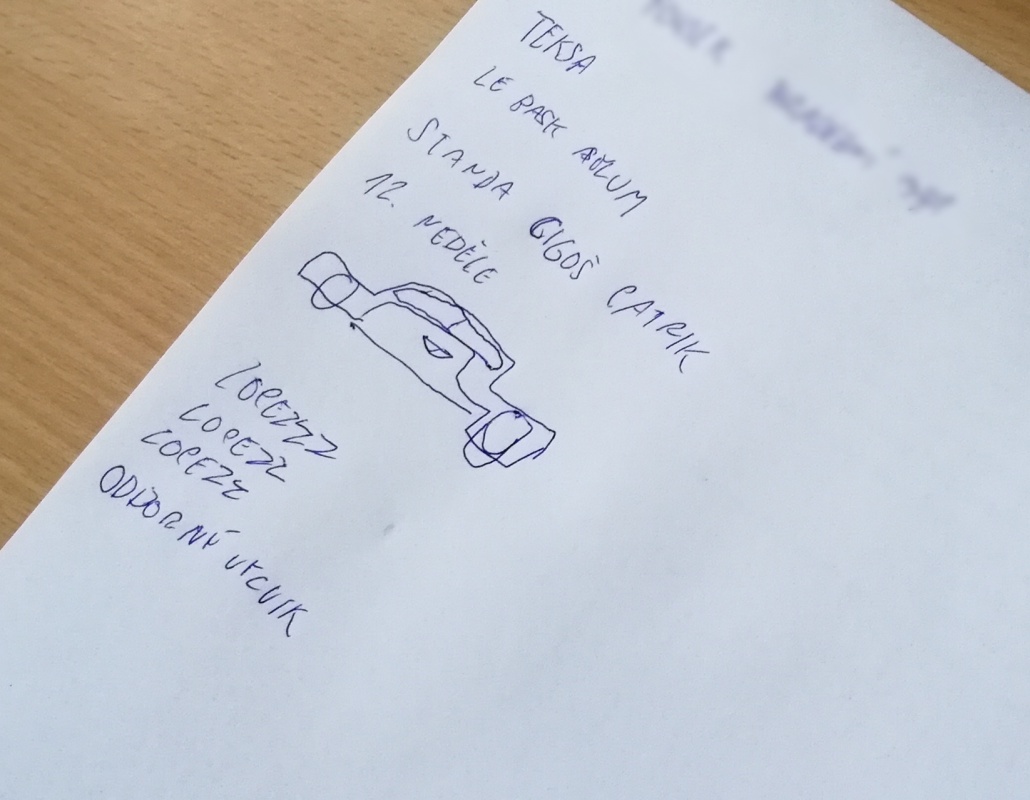 TEKSA
LE BASK
STANDA CIGOŠ PATRIK
12. NEDĚLE
LOPEZZZ
LOPEZZ
LOPEZZ
ODBORNÝ VÝCVIK